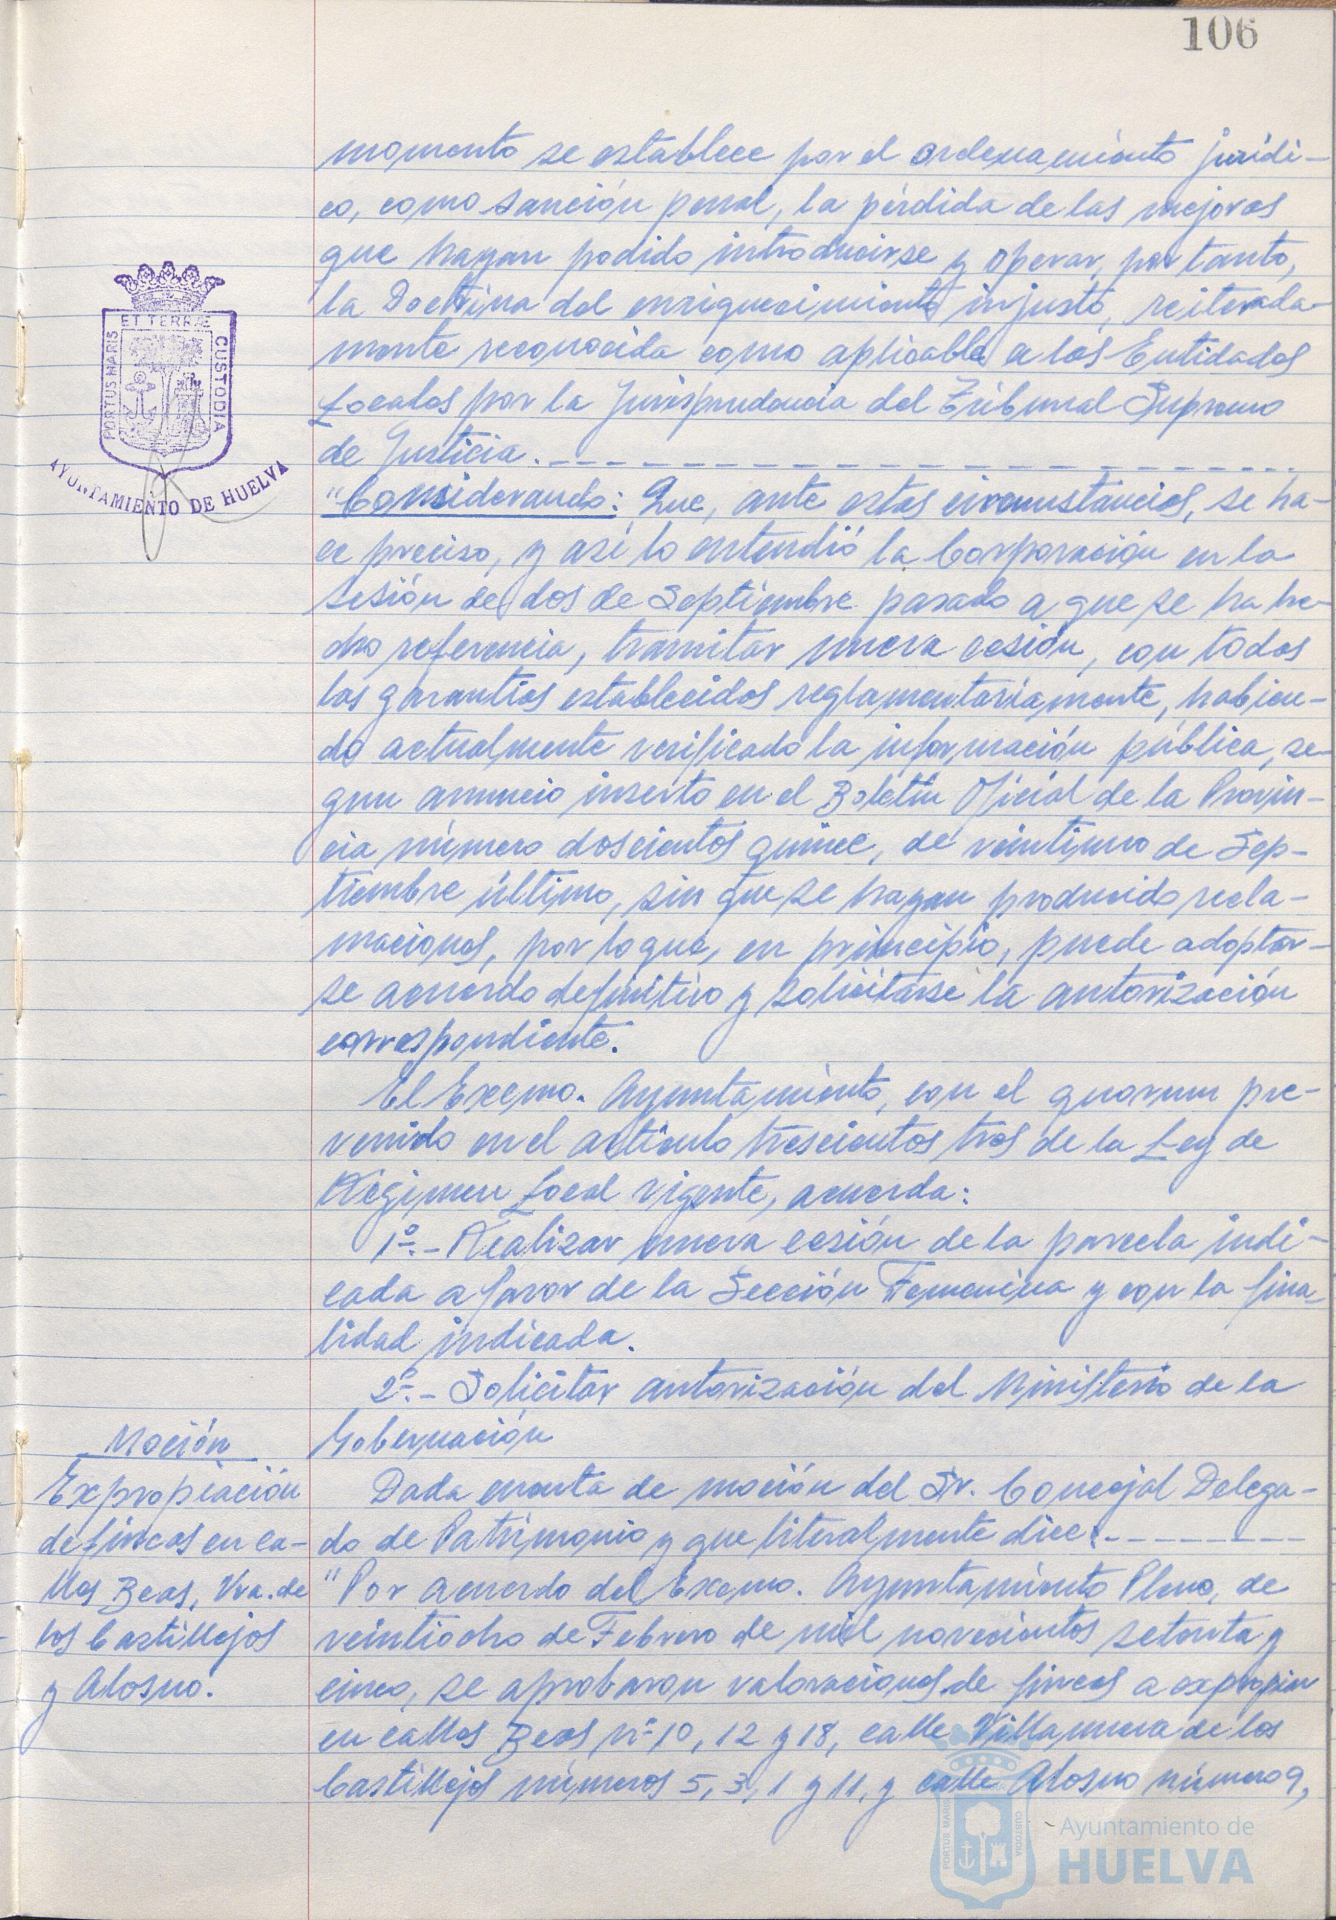 106
momento se establece por el ordenamiento jurídi-
co, como sanción penal, la pérdida de las mejoras
que hayan podido introducirse y operar, por tanto,
la Doctrina del enriquecimiento injusto, reiterada-
mente reconocida como aplicable a las Entidades
Locales por la Jurisprudencia del Tribunal Supremo
de Justicia.
"Considerando: Que, ante estas circunstancias, se ha-
ce preciso, y así lo entendió la Corporación en la
sesión de dos de Septiembre pasado a que se ha he-
cho referencia, tramitar nueva cesión, con todas
las garantías establecidas reglamentariamente, habien-
do actualmente verificado la información pública, se-
gun anuncio inserto en el Boletín Oficial de la Provin-
cia número doscientos quince, de veintiuno de Sep-
tiembre último, sin que se hayan producido recla-
maciones, por lo que, en principio, puede adoptar-
se acuerdo definitivo y solicitarse la autorización
correspondiente.
El Excmo. Ayuntamiento, con el quorum pre-
venido en el artículo trescientos tres de la Ley de
Régimen Local vigente, acuerda:
1º.- Realizar nueva cesión de la parcela indi-
cada a favor de la Sección Femenina y con la fina-
lidad indicada.
2º.- Solicitar autorización del Ministerio de la
Gobernación
Moción
Expropiación
de fincas en ca-
lles Beas, Vva. de
los Castillejos
y Alosno.
Dada cuenta de moción del Sr. Concejal Delega-
do de Patrimonio y que literalmente dice:
"Por acuerdo del Excmo. Ayuntamiento Pleno, de
veintiocho de Febrero de mil novecientos setenta y
cinco, se aprobaron valoraciones de fincas a expropiar
en calles Beas nº 10, 12 y 18, calle Villanueva de los
Castillejos números 5, 3, 1 y 11, y calle Alosno número 9,
PORTUS MARIS ET TERRÆ CUSTODIA
AYUNTAMIENTO DE HUELVA
PORTUS MARIS CUSTODIA
Ayuntamiento de
HUELVA